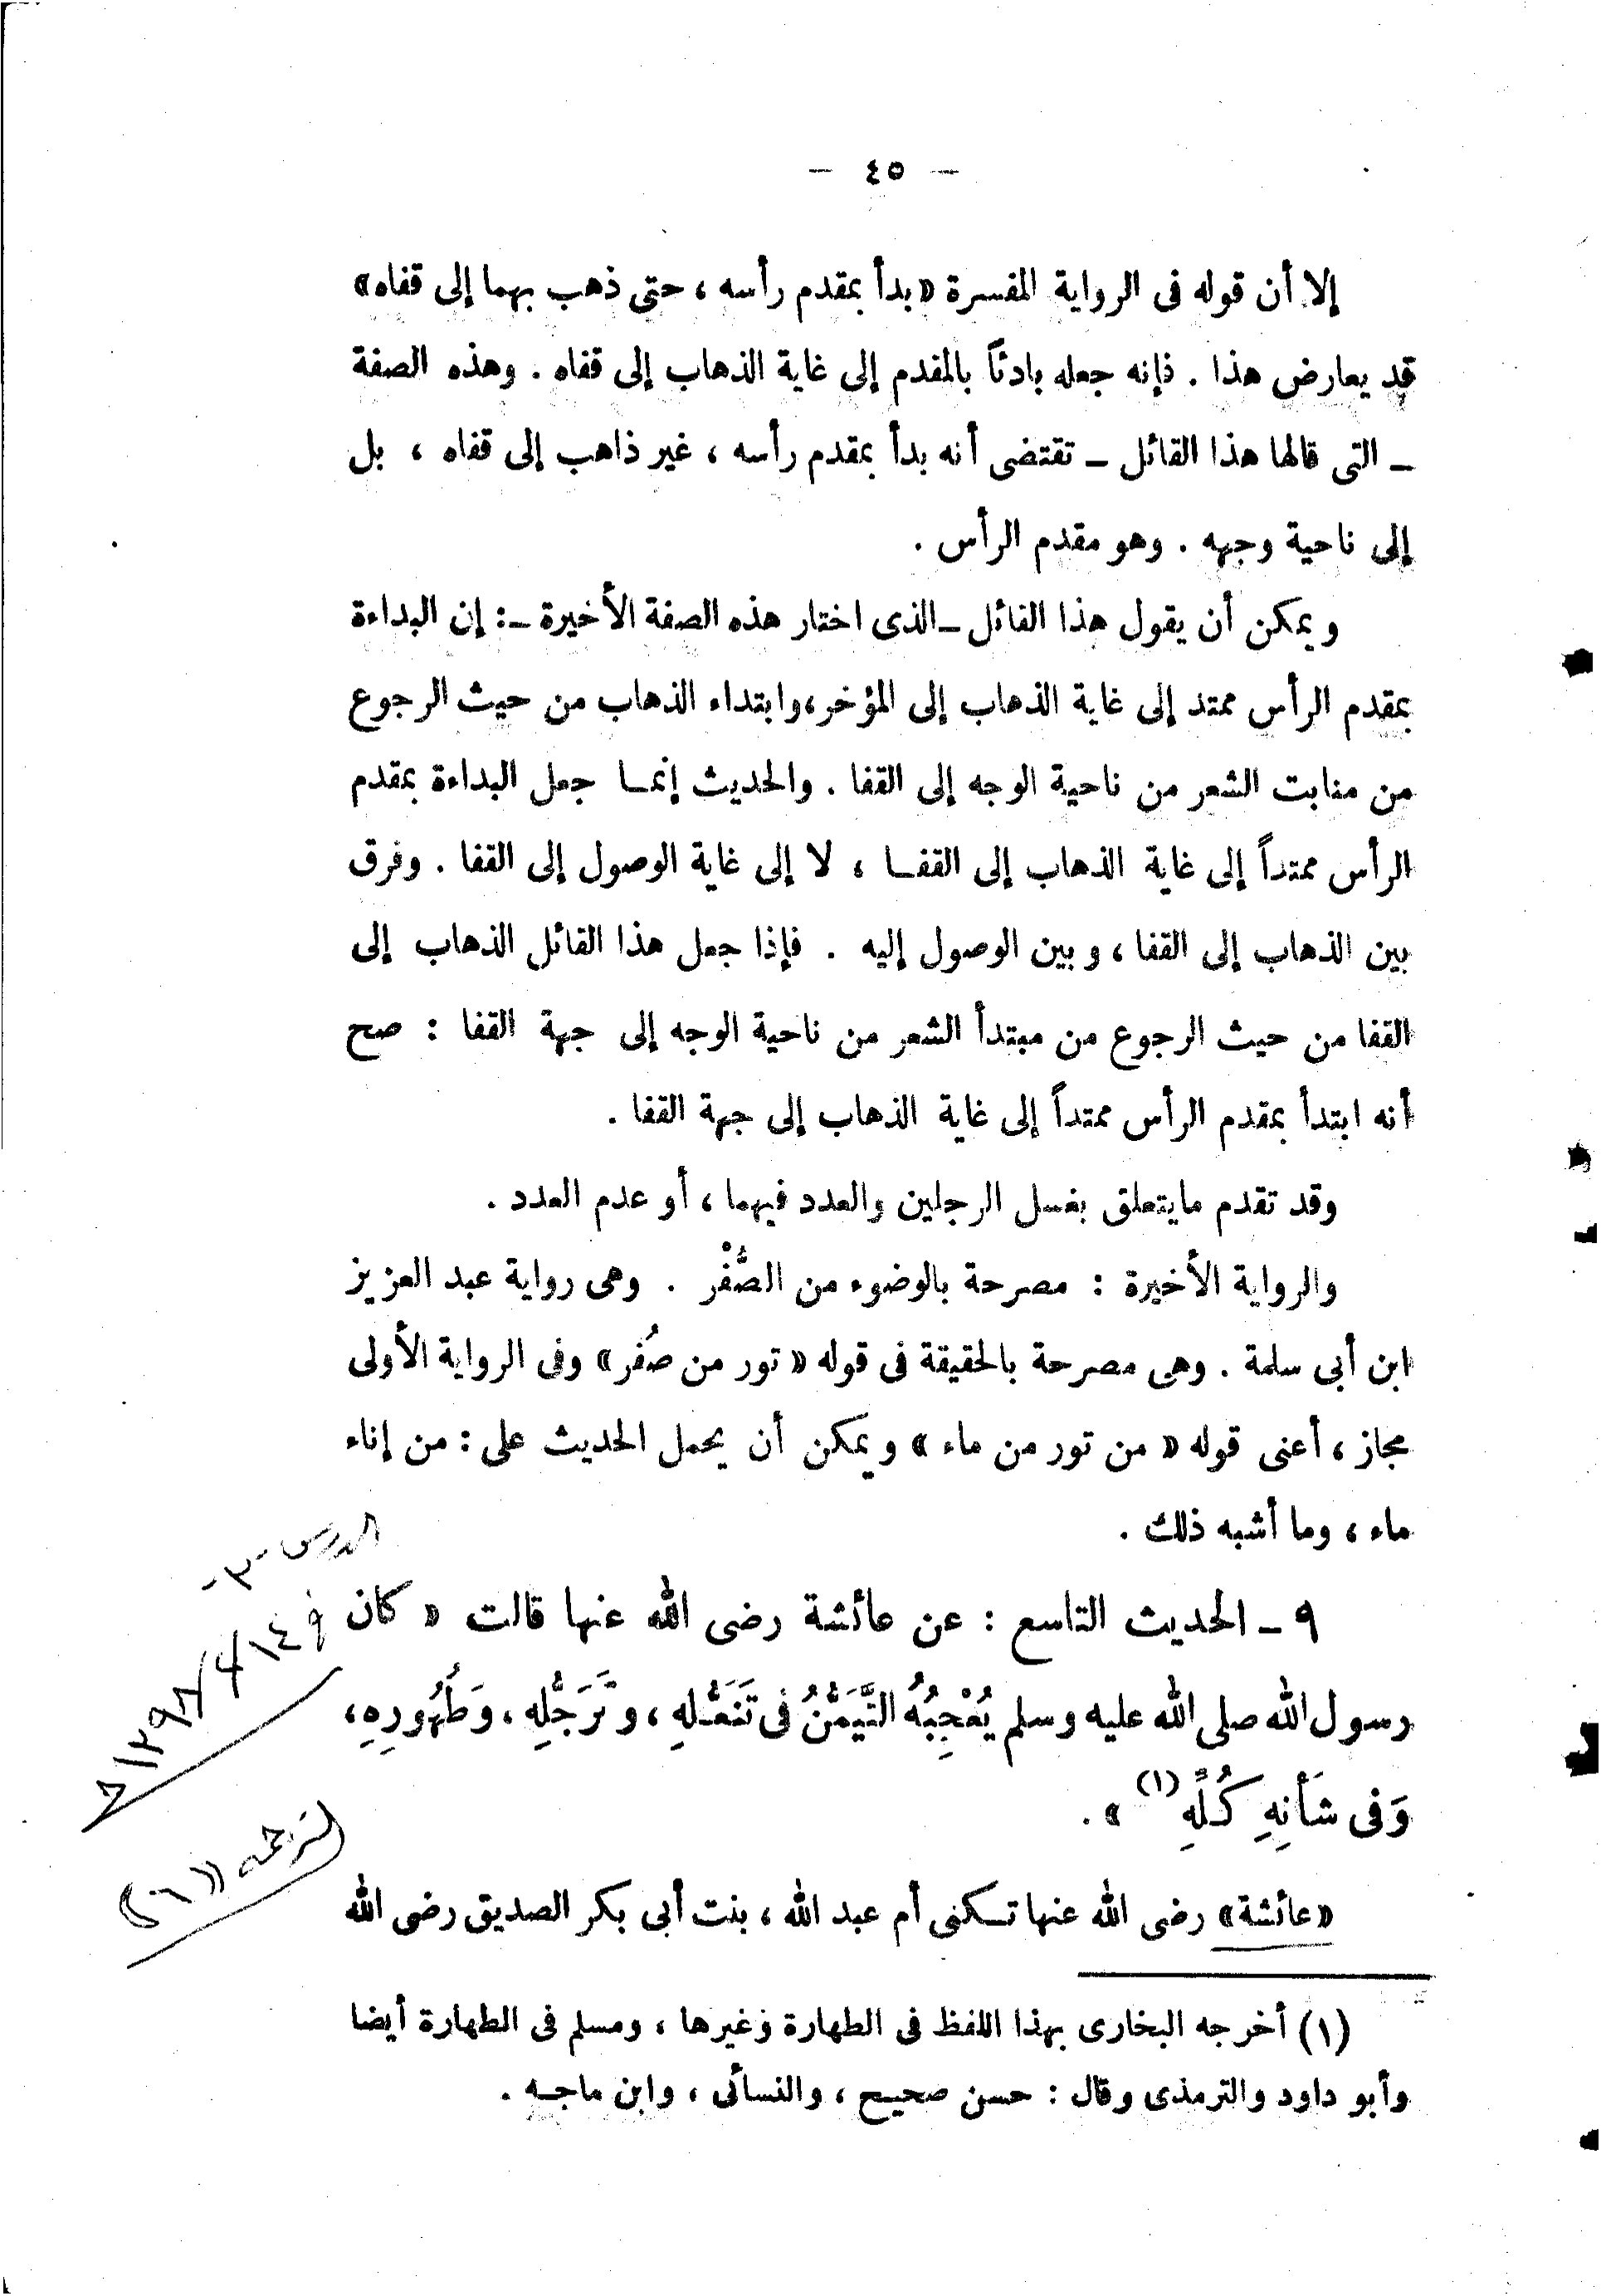 — ٤٥ —
إلا أن قوله فى الرواية المفسرة «بدأ بمقدم رأسه ، حتى ذهب بهما إلى قفاه»
قد يعارض هذا . فإنه جعله بادئاً بالمقدم إلى غاية الذهاب إلى قفاه . وهذه الصفة
ــ التى قالها هذا القائل ــ تقتضى أنه بدأ بمقدم رأسه ، غير ذاهب إلى قفاه ، بل
إلى ناحية وجهه . وهو مقدم الرأس .
ويمكن أن يقول هذا القائل ــ الذى اختار هذه الصفة الأخيرة ــ : إن البداءة
بمقدم الرأس ممتد إلى غاية الذهاب إلى المؤخر، وابتداء الذهاب من حيث الرجوع
من منابت الشعر من ناحية الوجه إلى القفا . والحديث إنمـا جعل البداءة بمقدم
الرأس ممتداً إلى غاية الذهاب إلى القفـا ، لا إلى غاية الوصول إلى القفا . وفرق
بين الذهاب إلى القفا ، وبين الوصول إليه . فإذا جعل هذا القائل الذهاب إلى
القفا من حيث الرجوع من مبتدأ الشعر من ناحية الوجه إلى جهة القفا : صح
أنه ابتدأ بمقدم الرأس ممتداً إلى غاية الذهاب إلى جهة القفا .
وقد تقدم مايتعلق بغسل الرجلين والعدد فيهما ، أو عدم العدد .
والرواية الأخيرة : مصرحة بالوضوء من الصُّفْر . وهى رواية عبد العزيز
ابن أبى سلمة . وهى مصرحة بالحقيقة فى قوله «تور من صُفر» وفى الرواية الأولى
مجاز ، أعنى قوله «من تور من ماء» ويمكن أن يحمل الحديث على : من إناء
ماء ، وما أشبه ذلك .
الدرس -٣-
٩ ــ الحديث التاسع : عن عائشة رضى الله عنها قالت «كان
رسول الله صلى الله عليه وسلم يُعْجِبُهُ التَّيَمُّنُ فى تَنَعُّلِهِ ، وتَرَجُّلِهِ ، وَطُهُورِهِ ،
وَفى شَأْنِهِ كُلِّهِ (١)» .
الترجمه ((٦))
«عائشة» رضى الله عنها تـكنى أم عبد الله ، بنت أبى بكر الصديق رضى الله
(١) أخرجه البخارى بهذا اللفظ فى الطهارة وغيرها ، ومسلم فى الطهارة أيضا
وأبو داود والترمذى وقال : حسن صحيح ، والنسائى ، وابن ماجـه .